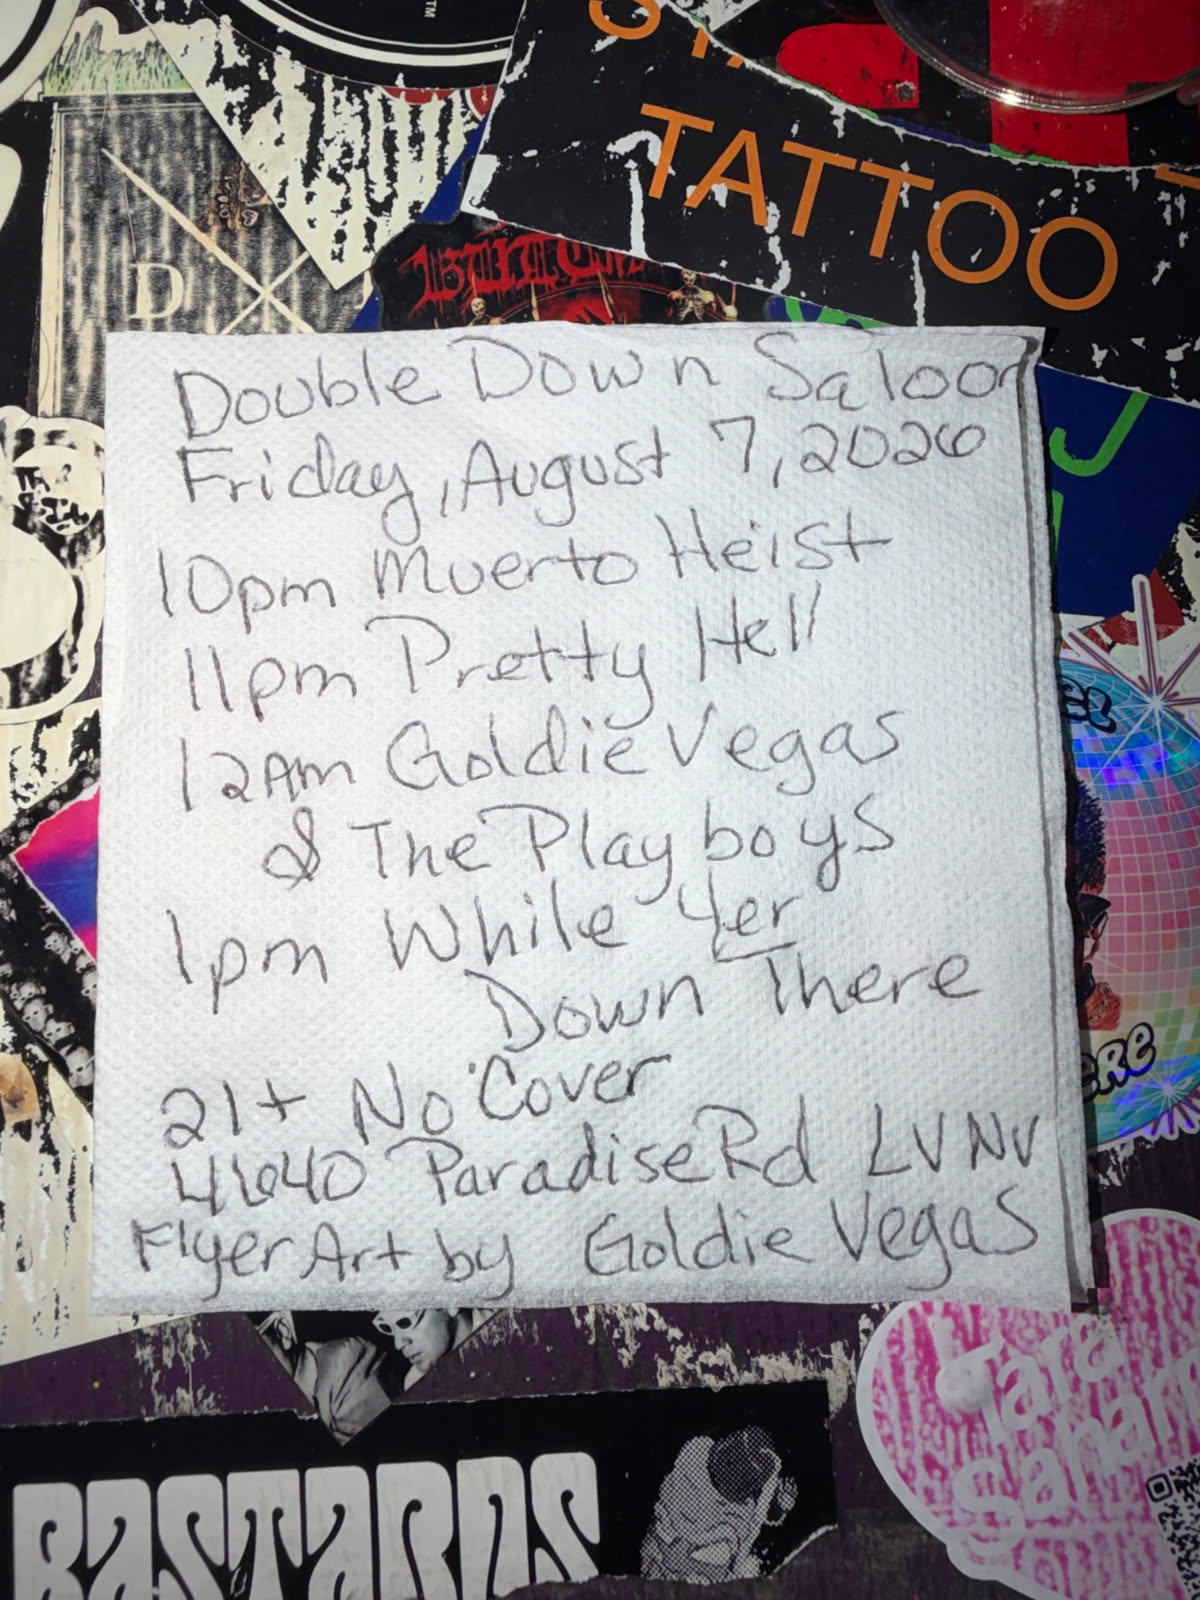 TM
TATTOO
D
Double Down Saloon
Friday, August 7, 2026
10pm Muerto Heist
11pm Pretty Hell
12Am Goldie Vegas
& The Playboys
1pm While Yer
Down There
21+ No Cover
4640 Paradise Rd LV NV
Flyer Art by Goldie Vegas
BASTARDS